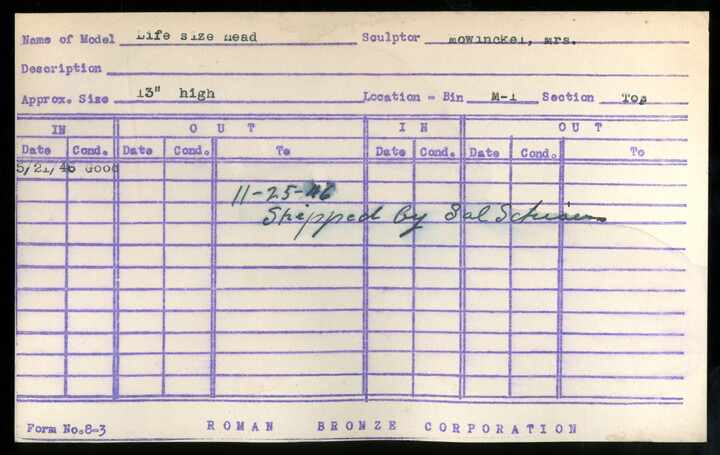 Name of Model Life size head Sculptor Mowinckel, Mrs.
Description
Approx. Size 13" high Location - Bin M-1 Section Top
IN OUT IN OUT
Date Cond. Date Cond. To Date Cond. Date Cond. To
5/21/46 Good
11-25-46
Shipped by Sal
Form No.8-3 ROMAN BRONZE CORPORATION